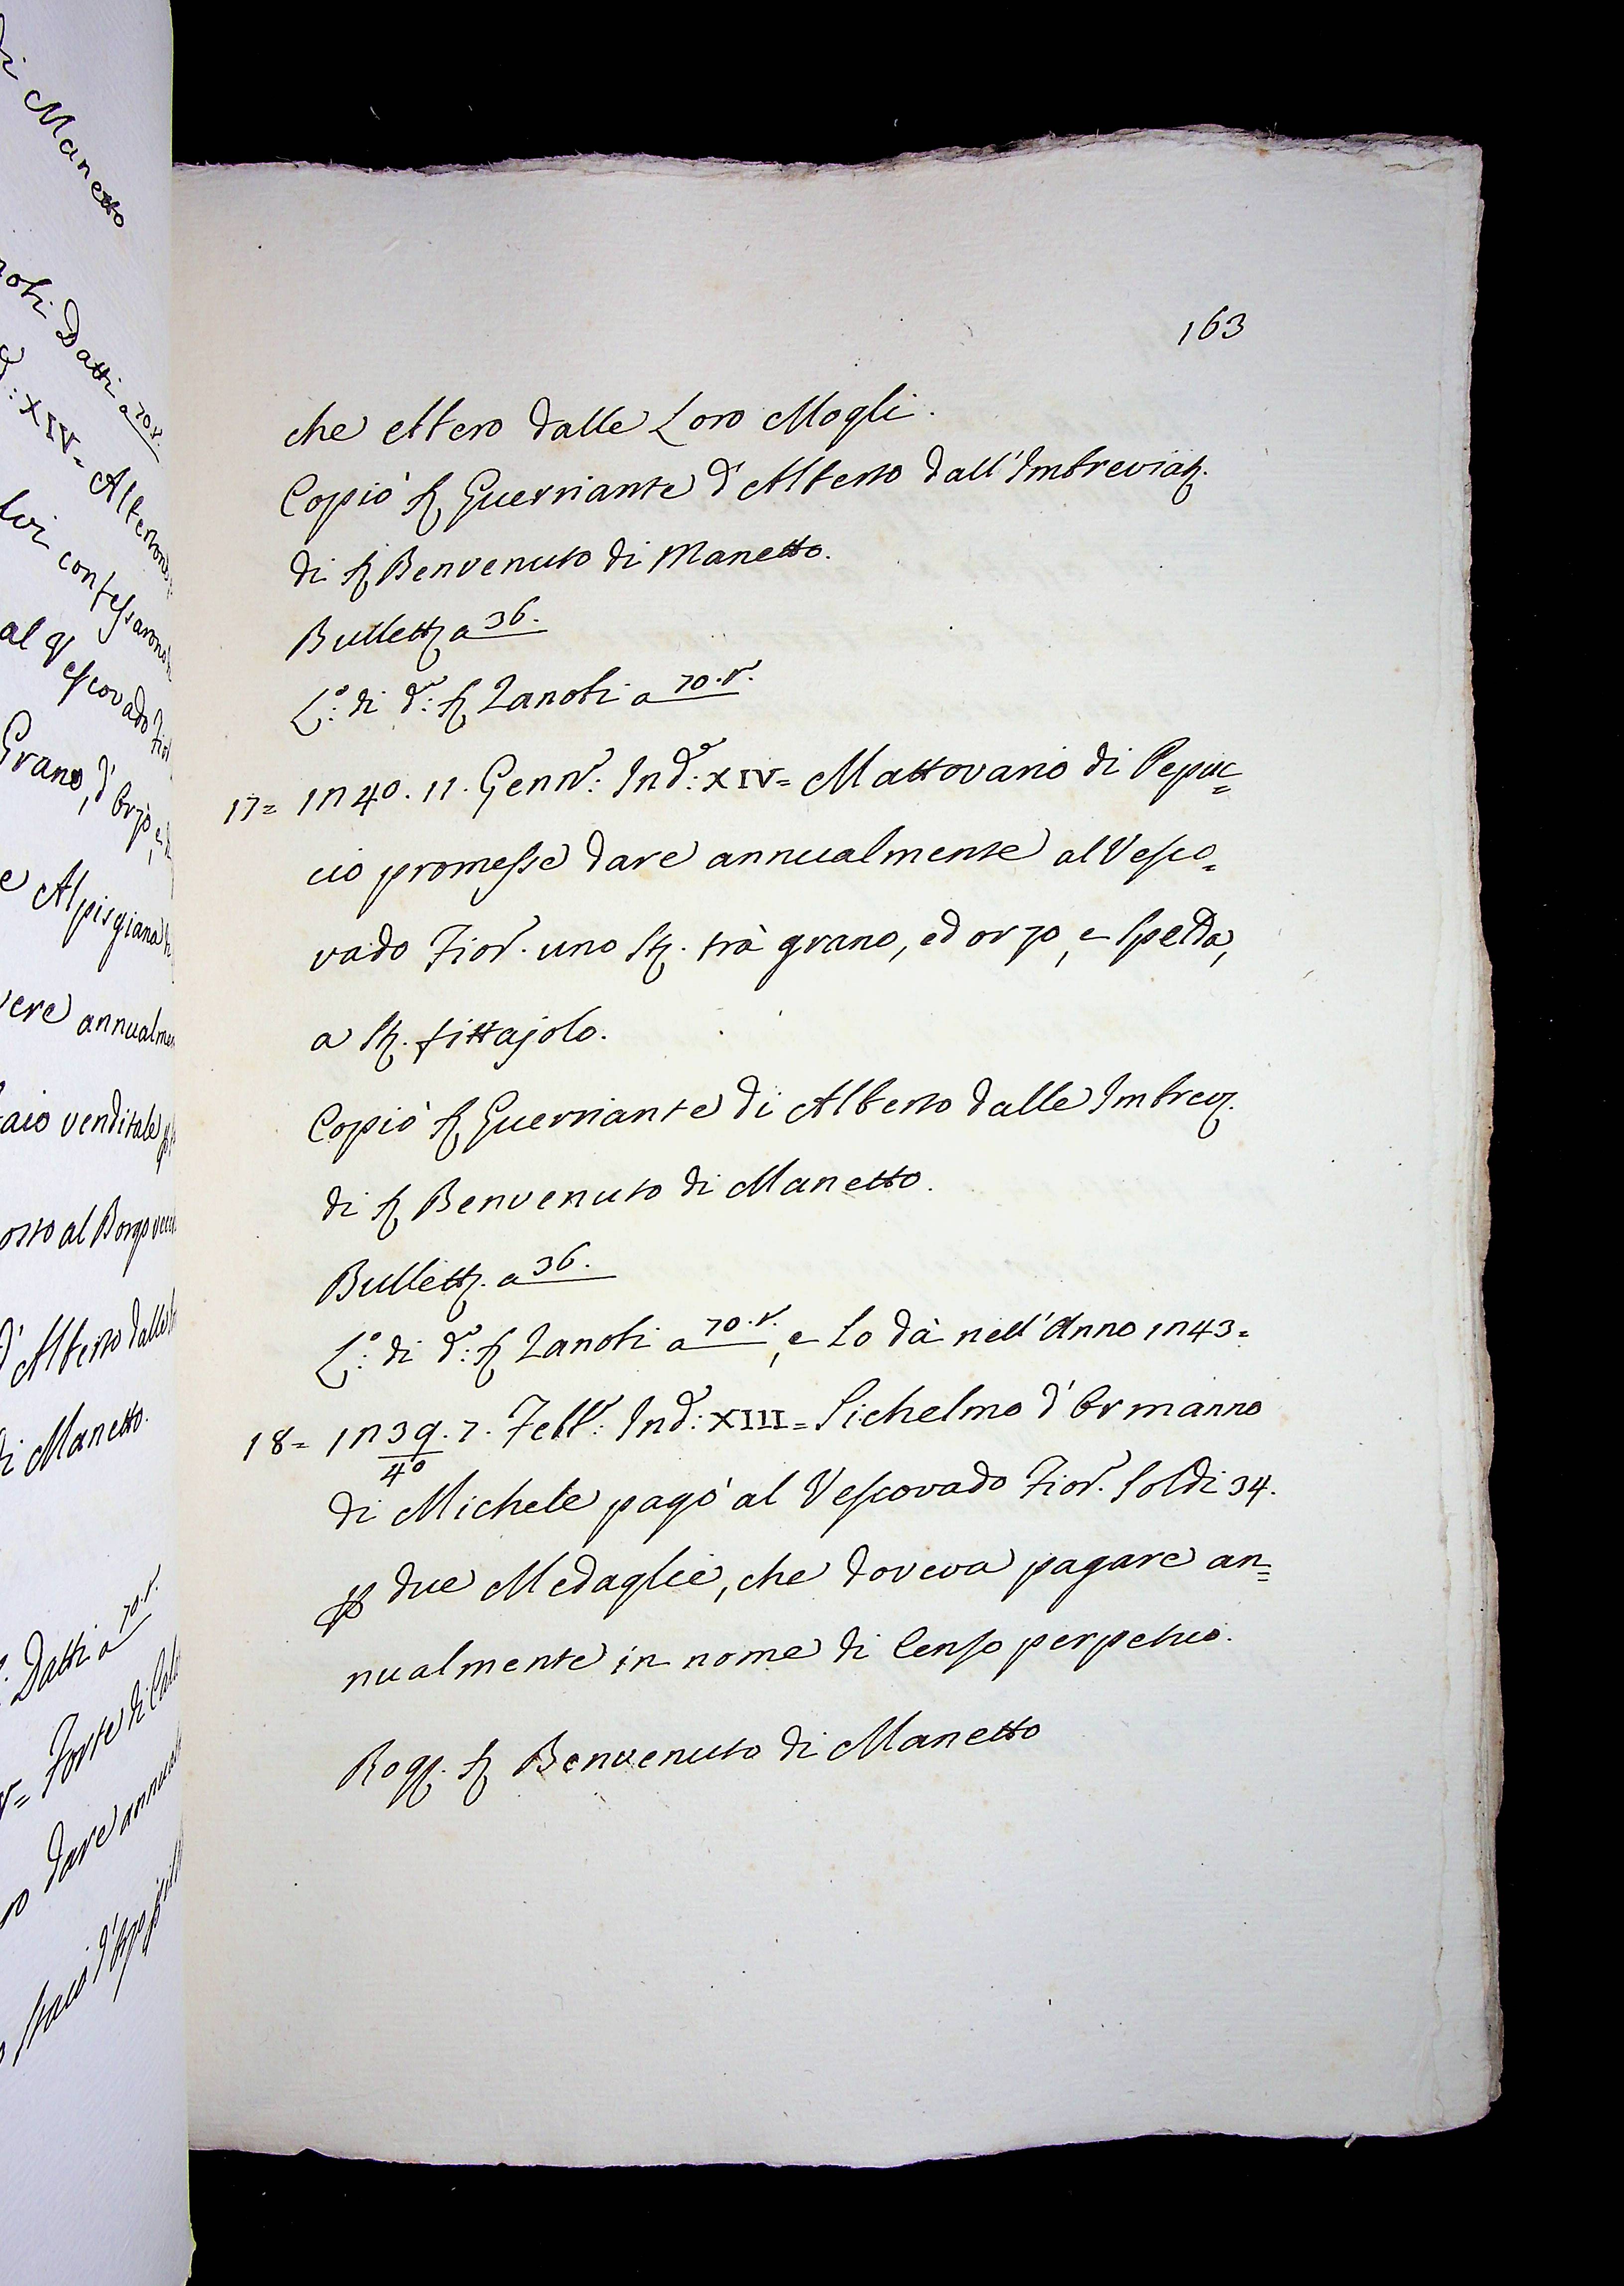 163
che ebbero dalle Loro Mogli.
Copiò Guerriante d'Alberto dall'Imbreviaz.
di Benvenuto di Manetto.
Bullett. a 36.
L.º: di d.º: Zanobi a 70.r.
17= 1240. 11. Genn.º: Ind.e: XIV= Mattovario di Pepuc=
cio promesse dare annualmente al Vesco=
vado Fior.º uno St. trà grano, ed orzo, e Spelda,
a St. fittajolo.
Copiò Guerriante di Alberto dalle Imbrev.
di Benvenuto di Manetto.
Bullett. a 36.
L.º: di d.º: Zanobi a 70.r., e Lo dà nell'Anno 1243=
18= 1239. 7. Febb.º: Ind.e: XIII= Sichelmo d'Ormanno
40
di Michele pagò al Vescovado Fior.º Soldi 34.
p due Medaglie, che doveva pagare an=
nualmente in nome di Censo perpetuo.
Rog. Benvenuto di Manetto
di Manetto
Datti a 70.r.
XIV= Al
confessarono
al Vescovado Fior
Grano, d'Orzo, e
e Alpisgiana
annualmen
aio venditale
al Borgo
d'Alberto dalle
di Manetto.
Datti a 70.r.
Forte di
dare annual